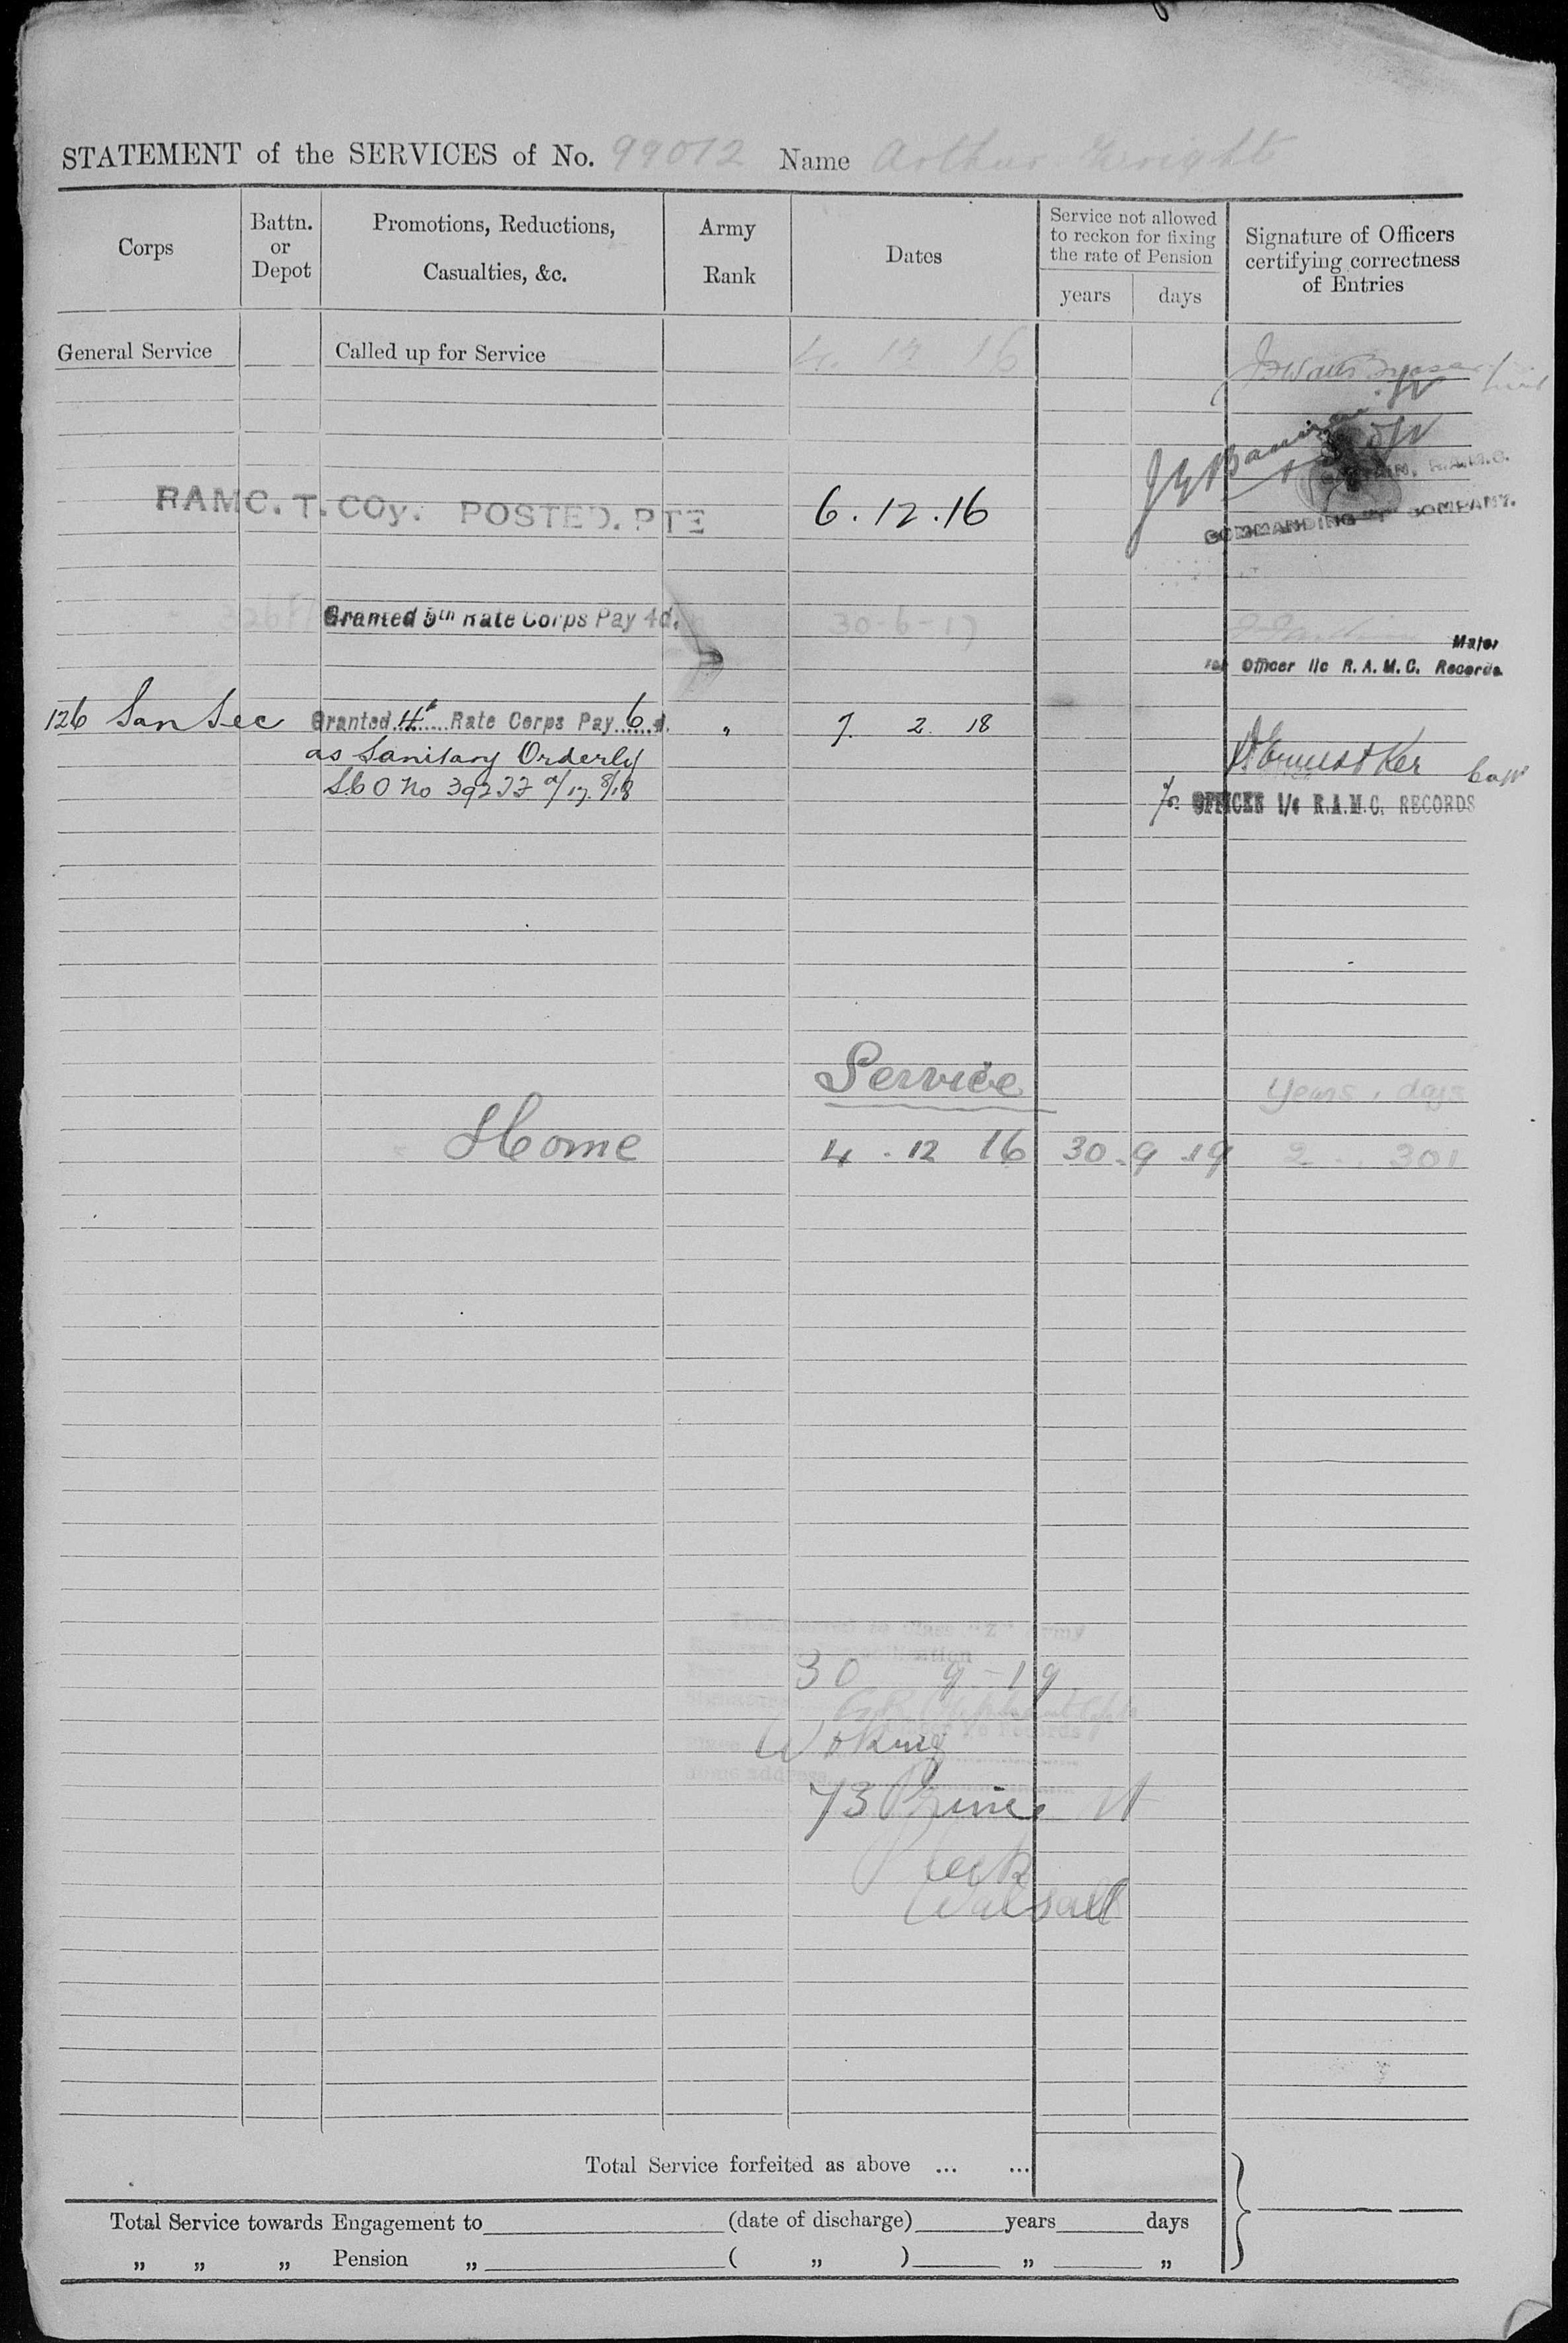 STATEMENT of the SERVICES of No. 99012 Name Arthur Wright
Corps
Battn. or Depot
Promotions, Reductions, Casualties, &c.
Army Rank
Dates
Service not allowed to reckon for fixing the rate of Pension
years days
Signature of Officers certifying correctness of Entries
General Service Called up for Service 4. 12 16
RAMC. T. COy. POSTED. PTE 6.12.16
CAPTAIN, R.A.M.C.
COMMANDING "T" COMPANY.
Granted 5th Rate Corps Pay 4d. 30-6-17
Major
for Officer i/c R.A.M.C. Records
126 San Sec Granted 4th Rate Corps Pay 6d. " 7. 2 18
as Sanitary Orderly
Ernest Ker Capt
for OFFICER i/c R.A.M.C. RECORDS
Service
years, days
Home 4.12 16 30.9.19 2 .. 301
Transferred to Class "Z" Army
Reserve on demobilization
30 9-19
Woking
Home address
73 Prince St
Pleck
Walsall
Total Service forfeited as above ... ...
Total Service towards Engagement to (date of discharge) years days
„ „ „ Pension „ ( „ ) „ „